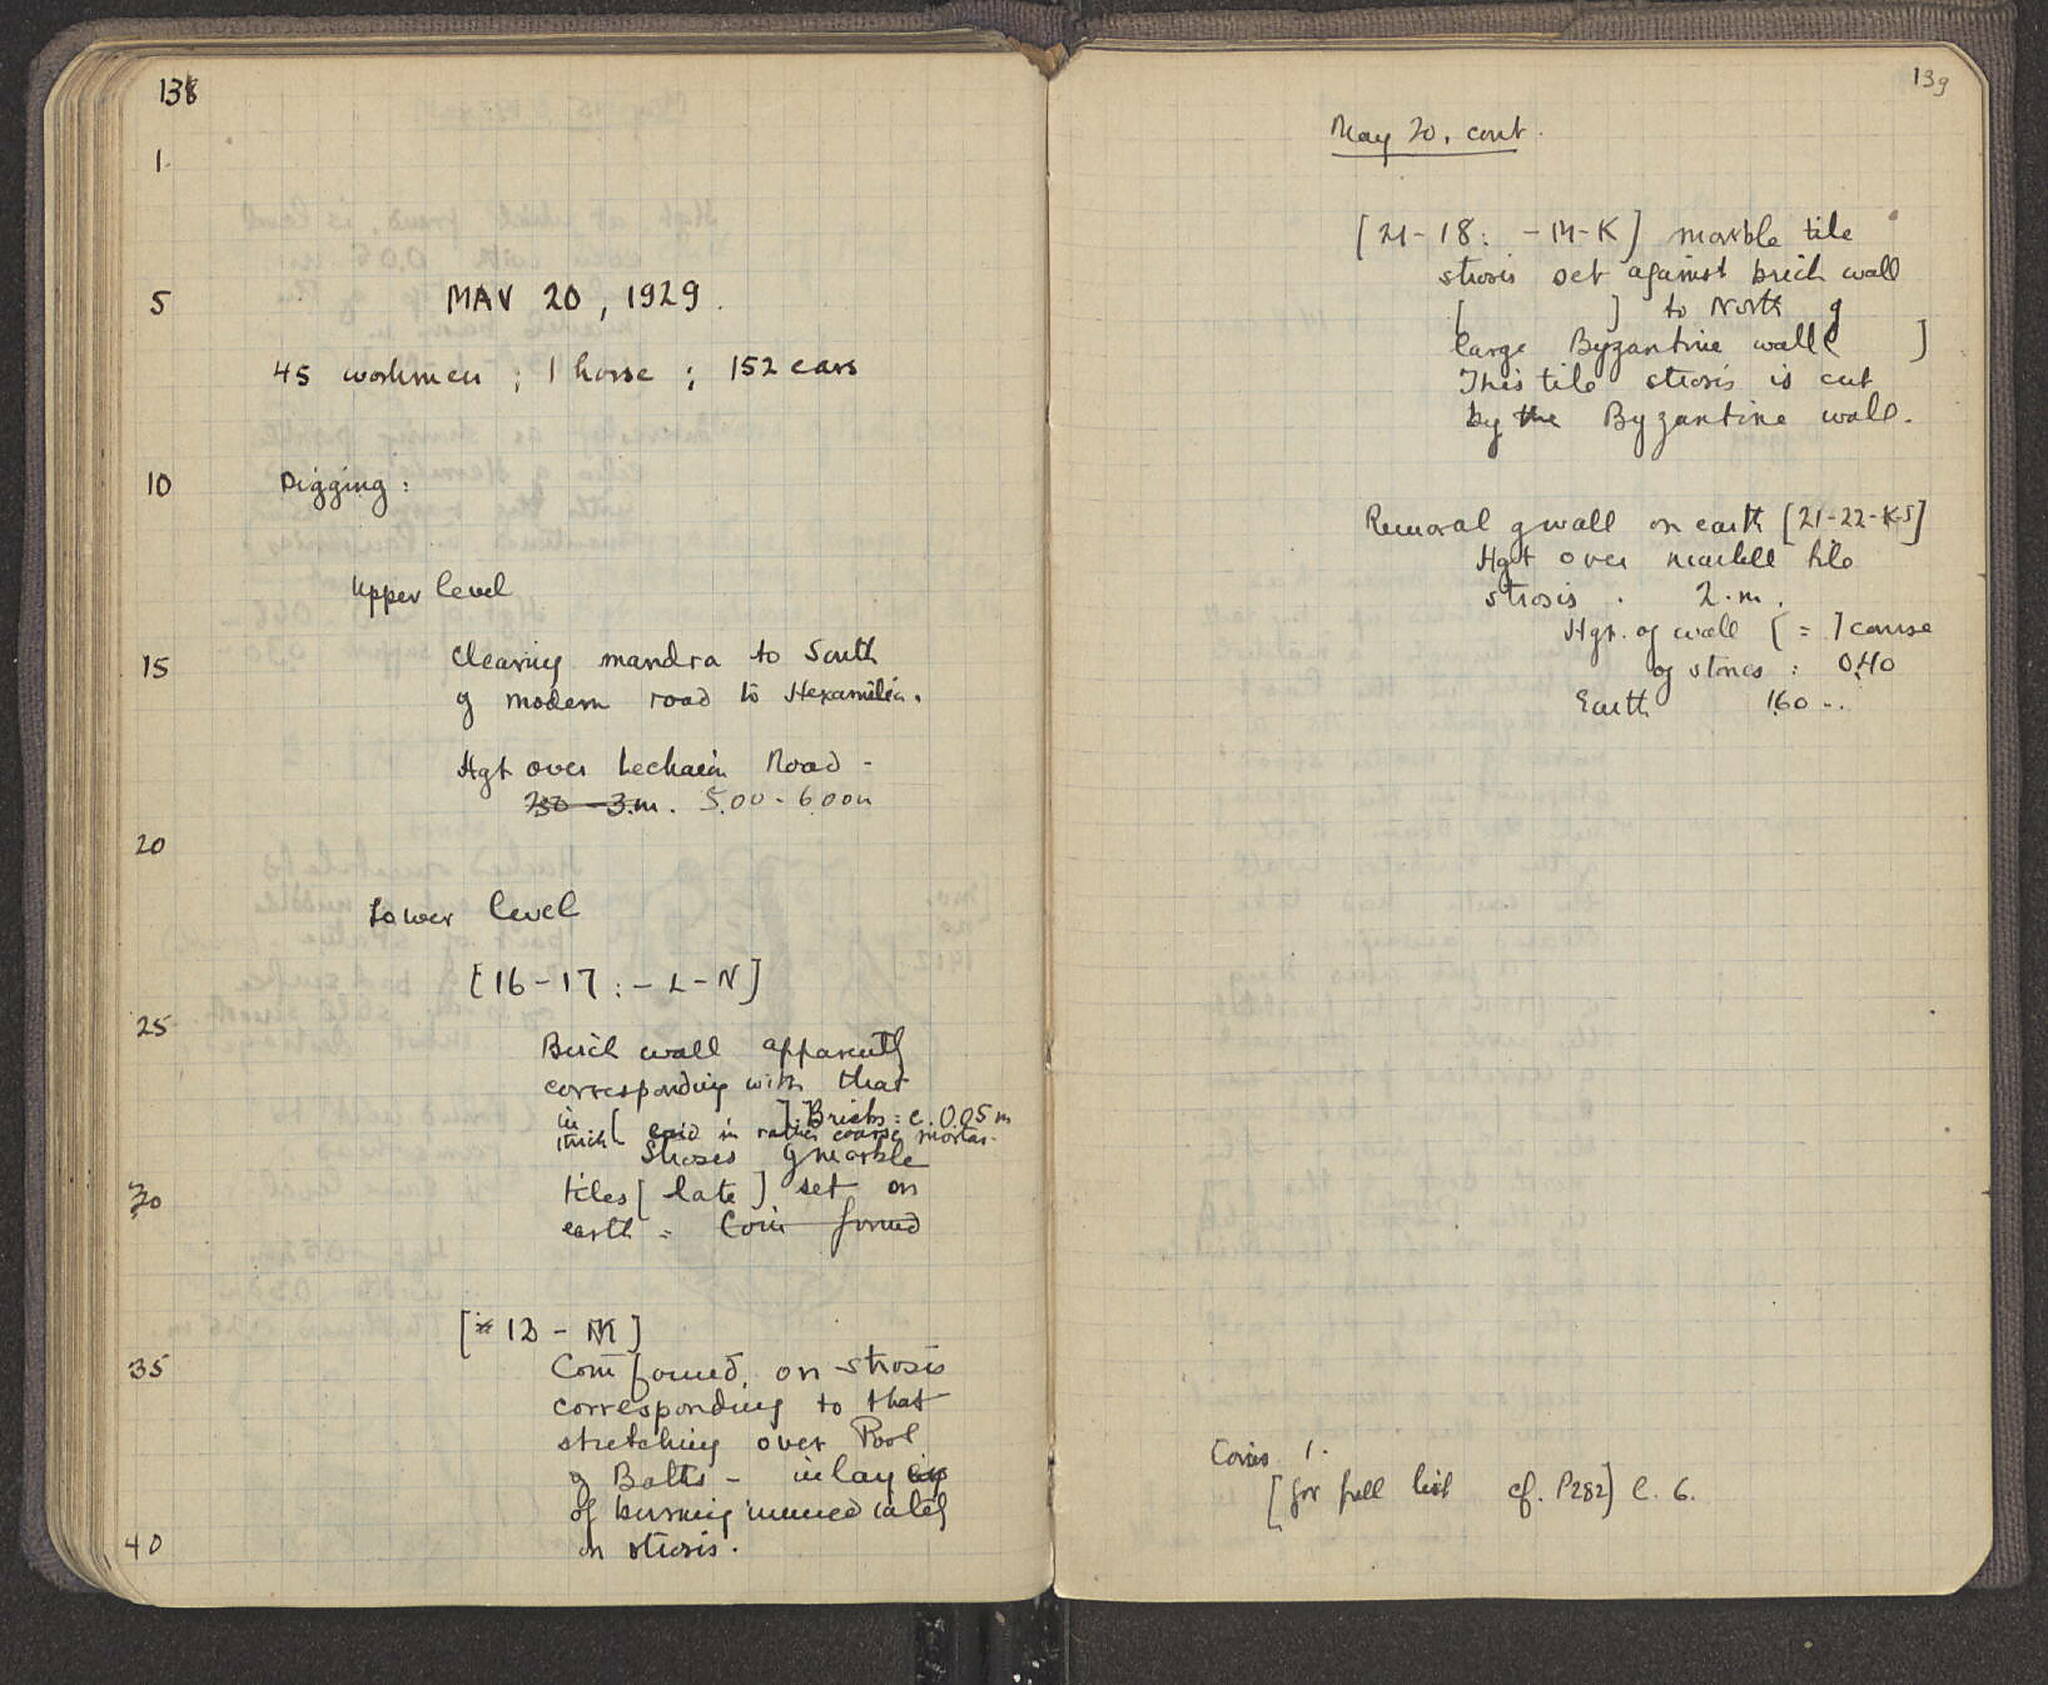 138
1.
5
MAY 20, 1929.
45 workmen ; 1 horse ; 152 cars
10
Digging :
Upper level
15
Clearing mandra to South
of modern road to Hexamilia.
Hgt over Lechaein Road -
2.50 - 3.m. 5.00 - 6.00m
20
Lower level
[16-17 : - L - N]
25
Brick wall apparently
corresponding with that
in [ ]. Bricks = c. 0.05 m
thick laid in rather coarse mortar.
Strosis of marble
30
tiles [late] set on
earth = Coin found
[* 13 - K]
35
Coin found, on strosis
corresponding to that
stretching over Pool
of Baths - in lay
of burning immediately
40
on strosis.
139
May 20, cont.
[21-18 : - M-K] marble tile
strosis set against brick wall
[ ] to North of
large Byzantine wall [ ]
This tile strosis is cut
by the Byzantine wall.
Removal of wall on earth [21-22-K-J]
Hgt over marble tile
strosis . 2.m.
Hgt. of wall [ = 1 course
of stones : 0.40
Earth 1.60 ..
Coins 1.
[for full list cf. P282] C. 6.